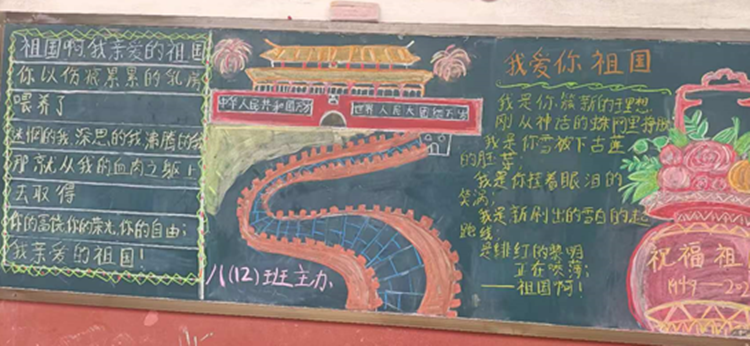 祖国啊我亲爱的祖国
你以伤痕累累的乳房
喂养了
迷惘的我、深思的我沸腾的我
那就从我的血肉之躯上
去取得
你的富饶你的荣光你的自由;
我亲爱的祖国!
中华人民共和国万岁
世界人民大团结万岁
八(12)班主办
我爱你祖国
我是你簇新的理想
刚从神话的蛛网里挣脱
我是你雪被下古莲
的胚芽;
我是你挂着眼泪的
笑涡;
我是新刷出的雪白的起
跑线
是绯红的黎明
正在喷薄;
——祖国啊!
祝福祖
1949—20